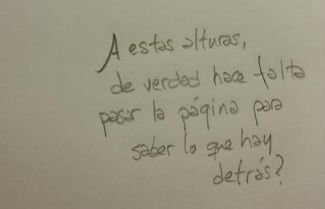 A estas alturas,
de verdad hace falta
pasar la página para
saber lo que hay
detrás?